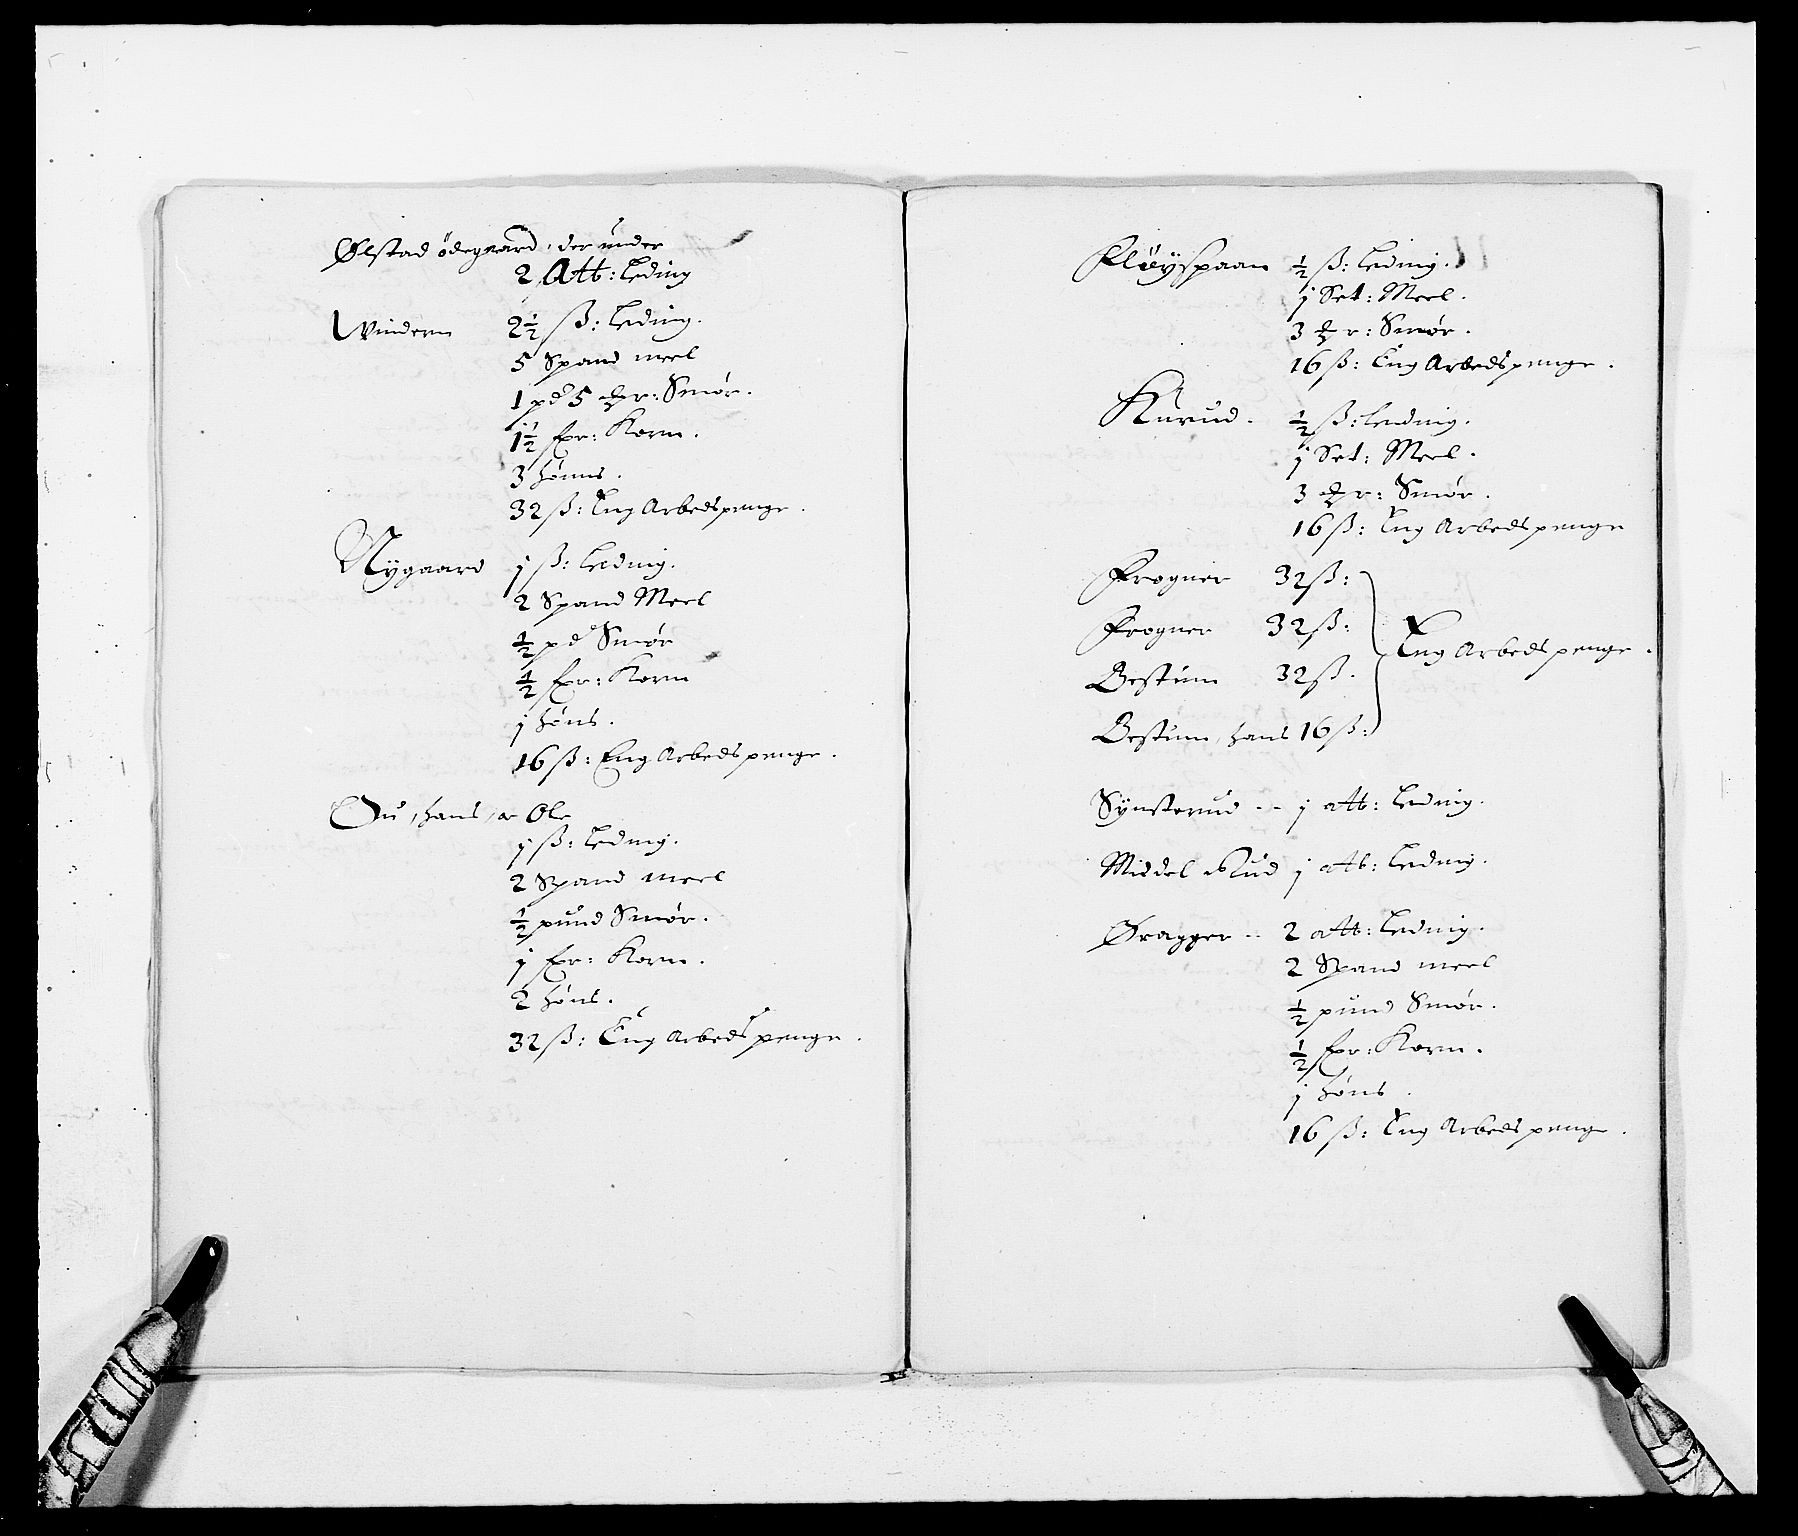 Ølstad ødegaard, der under
2 Att: Leding
Windern 2½ ß: Leding.
5 Spand meel
1 pd 5 mr: Smør.
1½ fxr: Korn.
3 hønns.
32 ß: Eng Arbedspenge.
Nygaard j ß: Leding.
2 Spand Meel
½ pd Smør
½ fxr: Korn
j høns.
16 ß: Eng Arbedspenge.
Ou, hans, oc Ole
j ß: Leding.
2 Spand meel
½ pund Smør.
j fxr: Korn.
2 høns.
32 ß: Eng Arbedspenge.
Fløyspaan ½ ß: Leding.
j Set: Meel.
3 mr: Smør.
16 ß: Eng Arbedspenge.
Kurud. ½ ß: Leding.
j Set: Meel.
3 mr: Smør.
16 ß: Eng Arbedspenge
Frogner 32 ß:
Frogner 32 ß:
Eng Arbedspenge.
Bestum 32 ß.
Bestum, hans 16 ß:
Synsterud -- j att: Leding.
Middel Rud j att: Leding.
Dragger -- 2 att: Leding.
2 Spand meel
½ pund Smør.
½ fxr: Korn.
j høns.
16 ß: Eng Arbedspenge.